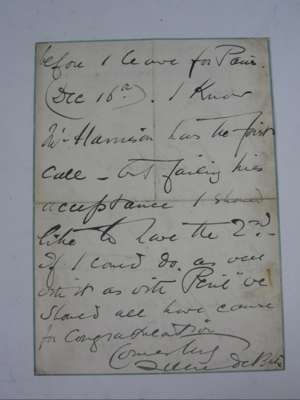 before I leave for Paris.
(Dec 16th). I know
Mr Harrison has the first
call – but failing his
acceptance I should
like to have the 2nd –
if I could do as well
with it as with "Peril" we
should all have cause
for Congratulation